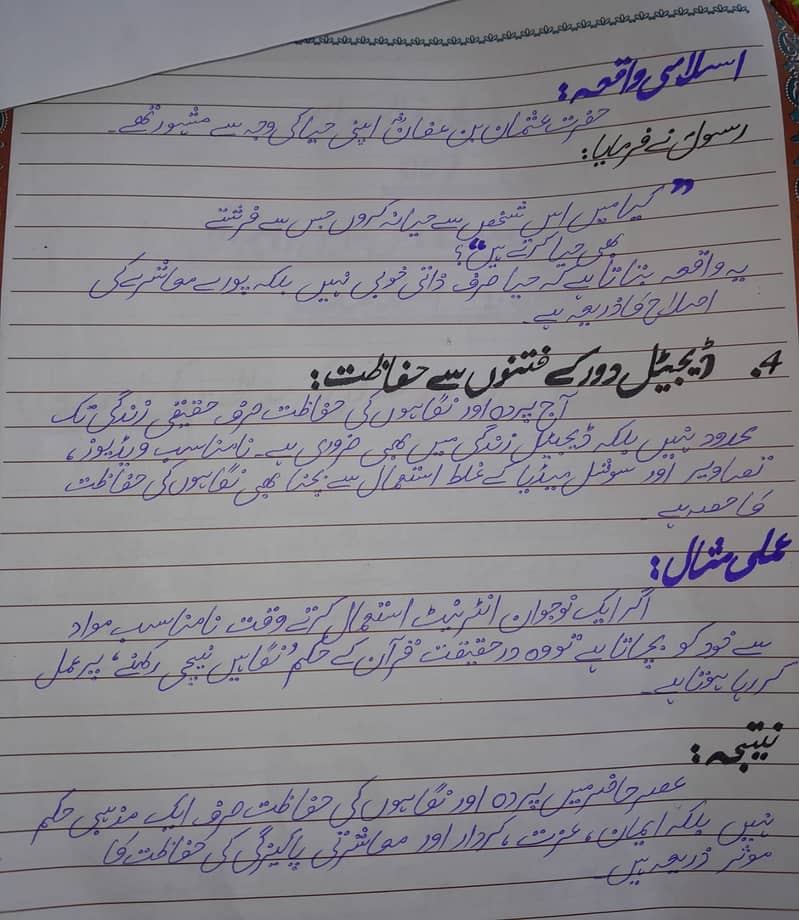 اسلامی واقعہ:
حضرت عثمان بن عفانؓ اپنی حیا کی وجہ سے مشہور تھے۔
رسولؐ نے فرمایا:
”کیا میں اس شخص سے حیا نہ کروں جس سے فرشتے
بھی حیا کرتے ہیں“؟
یہ واقعہ بتاتا ہے کہ حیا صرف ذاتی خوبی نہیں بلکہ پورے معاشرے کی
اصلاح کا ذریعہ ہے۔
4. ڈیجیٹل دور کے فتنوں سے حفاظت:
آج پردہ اور نگاہوں کی حفاظت صرف حقیقی زندگی تک
محدود نہیں بلکہ ڈیجیٹل زندگی میں بھی ضروری ہے۔ نامناسب ویڈیوز،
تصاویر اور سوشل میڈیا کے غلط استعمال سے بچنا بھی نگاہوں کی حفاظت
کا حصہ ہے۔
عملی مثال:
اگر ایک نوجوان انٹرنیٹ استعمال کرتے وقت نامناسب مواد
سے خود کو بچاتا ہے تو وہ درحقیقت قرآن کے حکم ‘نگاہیں نیچی رکھنے’ پر عمل
کر رہا ہوتا ہے۔
نتیجہ:
عصر حاضر میں پردہ اور نگاہوں کی حفاظت صرف ایک مذہبی حکم
نہیں بلکہ ایمان، عزت، کردار اور معاشرتی پاکیزگی کی حفاظت کا
موثر ذریعہ ہیں۔